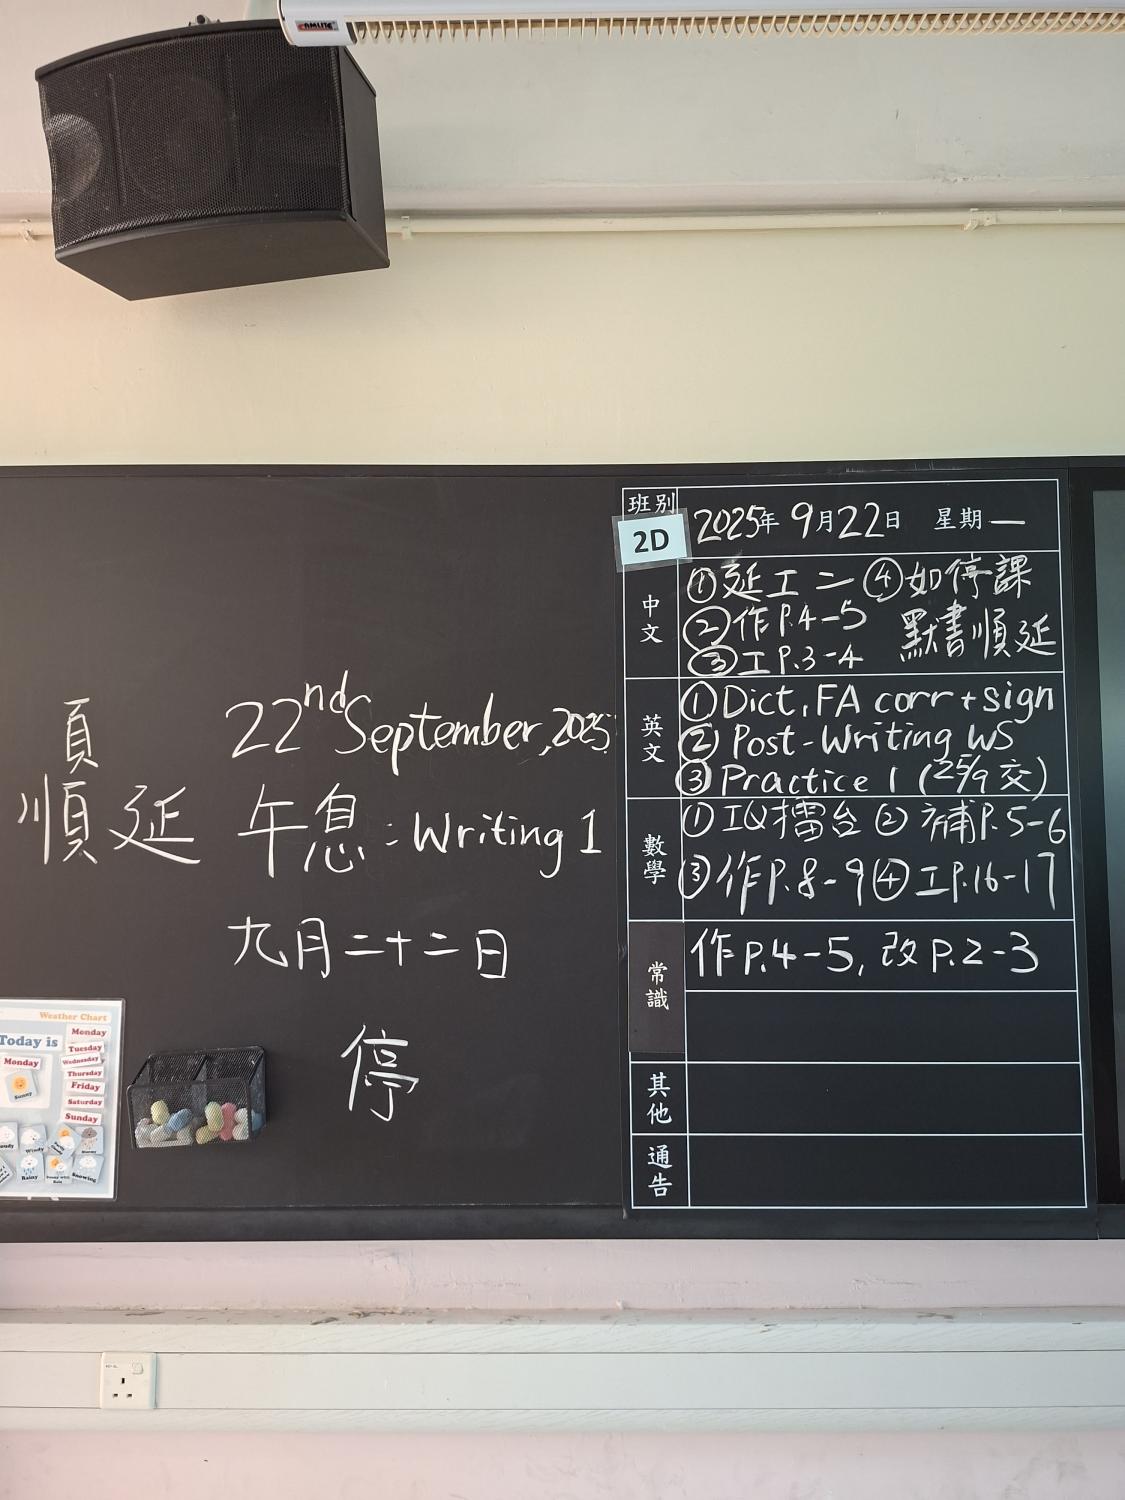 AMLITE
頁
順延
22nd September, 2025
午息：Writing 1
九月二十二日
停
班別
2D
2025年 9月22日 星期一
中文
①延工二 ④如停課
②作P.4-5 默書順延
③工P.3-4
英文
①Dict, FA corr + sign
② Post-Writing WS
③ Practice 1 (25/9交)
數學
① IQ擂台 ② 補P.5-6
③作P.8-9 ④工P.16-17
常識
作P.4-5, 改P.2-3
其他
通告
Weather Chart
Today is
Monday
Sunny
Monday
Tuesday
Wednesday
Thursday
Friday
Saturday
Sunday
Windy
Stormy
Rainy
Snowing